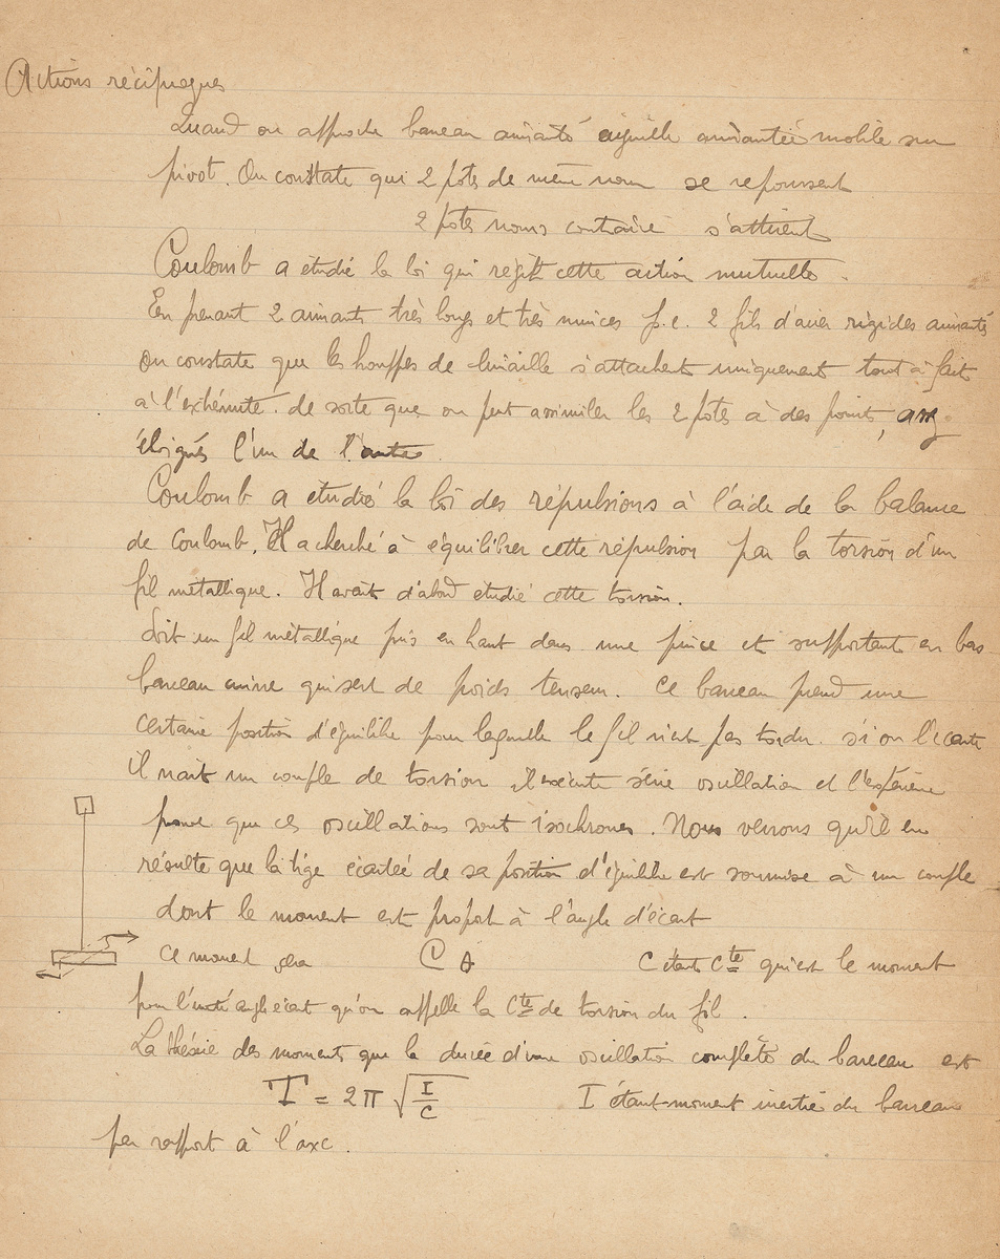 Actions réciproques
Quand on approche barreau aimanté aiguille aimantée mobile sur
pivot. On constate que 2 pôles de même nom se repoussent
2 pôles noms contraire s'attirent
Coulomb a étudié la loi qui régit cette action mutuelle.
En prenant 2 aimants très longs et très minces p.e. 2 fils d'acier rigides aimantés
on constate que les houppes de limaille s'attachent uniquement tout à fait
à l'extrémité. de sorte que on peut assimiler les 2 pôles à des points, ass
éloignés l'un de l'autre.
Coulomb a étudié la loi des répulsions à l'aide de la balance
de Coulomb. Il a cherché à équilibrer cette répulsion par la torsion d'un
fil métallique. Il avait d'abord étudié cette torsion.
Soit un fil métallique pris en haut dans une pince et supportant en bas
barreau cuivre qui sert de poids tenseur. Ce barreau prend une
certaine position d'équilibre pour laquelle le fil n'est pas tordu. si on l'écarte
il naît un couple de torsion, il exécute série oscillation et l'expérience
prouve que ces oscillations sont isochrones. Nous verrons qu'il en
résulte que la tige écartée de sa position d'équilibre est soumise à un couple
dont le moment est propot à l'angle d'écart
Ce moment sera C A C étant Cte qui est le moment
pour l'unité angle écart qu'on appelle la Cte de torsion du fil.
La théorie des moments que la durée d'une oscillation complète du barreau est
T = 2π √(I/C) I étant moment inertie du barreau
par rapport à l'axe.